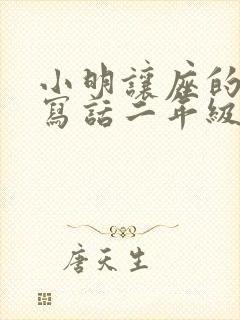 小明讓座的
寫話二年級
唐天生